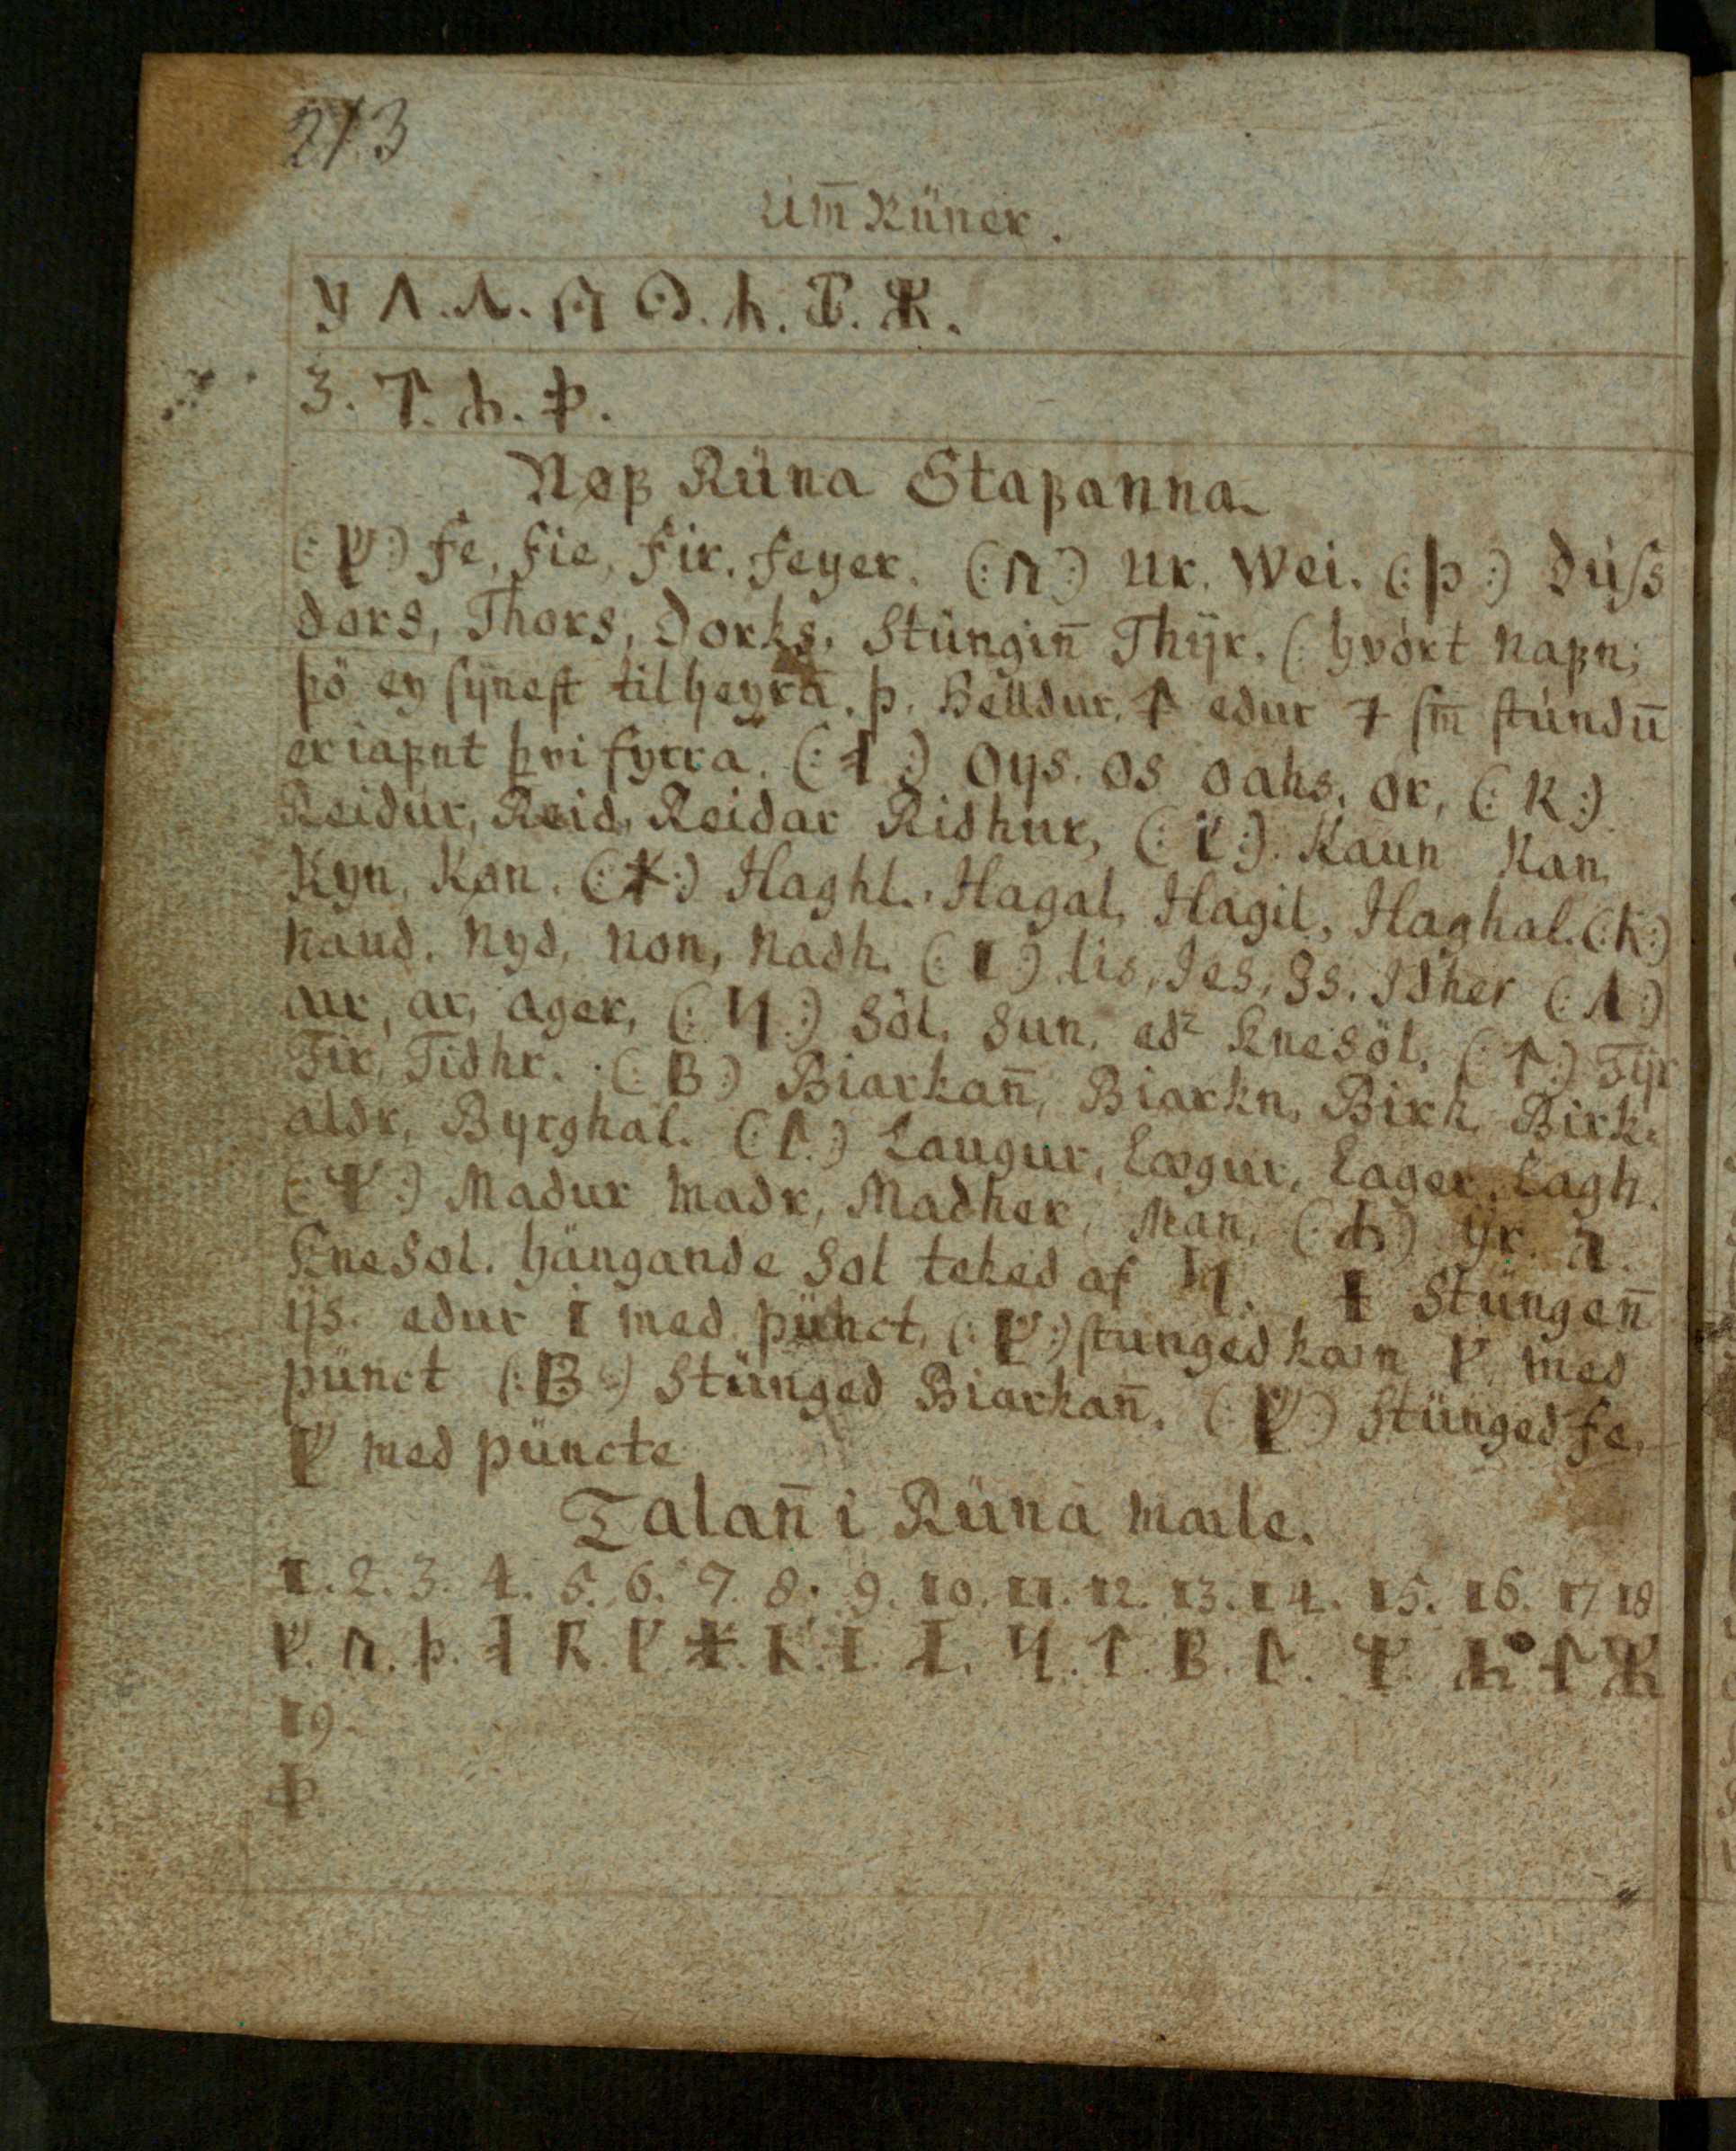 273
Um̅ Rüner.
y ᚢ. ᚢ. ᛦ. ᛯ.
3. ᛏ. ᚦ.
Nøꝼ Rüna Staꝼanna.
(: ᚠ :) fe, fie, fir, feyer. (: ᚢ :) Ur. Wei. (: ᚦ :) Duſs
dors, Thors, Dorks. Stüngin̅ Thÿr. (: hvört naꝼn;
þö ey ſÿneſt til heyra. þ. Helldur. ᛏ edur ſm̅ ſtúndu̅
er iaꝼnt þvi fyrra. (: ᚬ :) Oys. os oahs, or, (: ᚱ :)
Reidur, Reid, Reidar Ridhur, (: ᚴ :). Kaun Kan,
Kyn, Køn. (: ᚼ :) Haghl. Hagal, Hagil, Haghal. (: ᚾ :)
Naud. Nyd, Non, Nadh. (: ᛁ :) Iis, Ies, Is. Idher (: ᛅ :)
aur, ar, ager, (: ᛋ :) Söl, Sun, edꝛ KneSöl. (: ᛏ :) Tÿr
Tir, Tidhr. (: ᛒ :) Biarkan̅, Biarkn, Birk Birk-
aldr, Byrghal. (: ᛚ :) Laugur, Lægur, Lager, Lagh.
(: ᛘ :) Madur madr, Madher, Man, (: ᛦ :) ÿr.
KneSol. hängande Sol teked af ᛋ. ᛂ Stüngen̅
ÿs. edur i med pünct, (: ᚵ :) ſtunged kavn ᚴ med
pünct (: ᛒ :) Stünged Biarkan̅. (: ᚠ :) Stünged fe.
ᚠ med püncte
Talan̅ i Rüna maile.
1. 2. 3. 4. 5. 6. 7. 8. 9. 10. 11. 12. 13. 14. 15. 16. 17 18
ᚠ. ᚢ. ᚦ. ᚬ ᚱ. ᚴ. ᚼ. ᚾ. ᛁ. ᛅ. ᛋ. ᛏ. ᛒ. ᛚ. ᛘ. ᛦ ᛮ ᛯ
19
ᛰ.